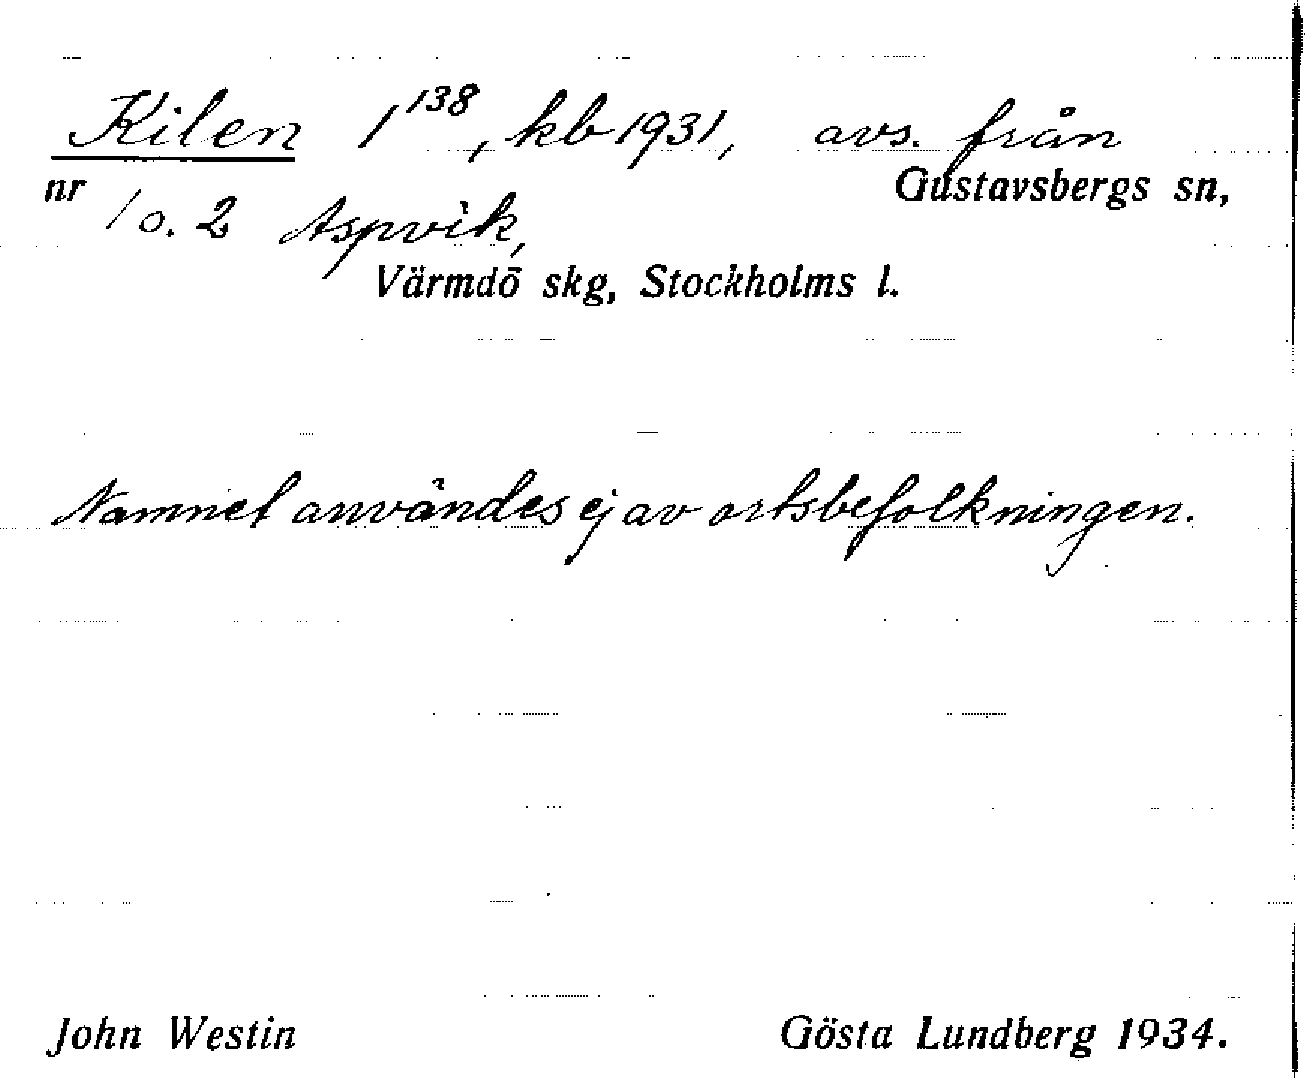 Kilen 1¹³⁸, kb 1931, avs. från
nr 1 o. 2 Aspvik, Gustavsbergs sn,
Värmdö skg, Stockholms l.
Namnet användes ej av ortsbefolkningen.
John Westin Gösta Lundberg 1934.